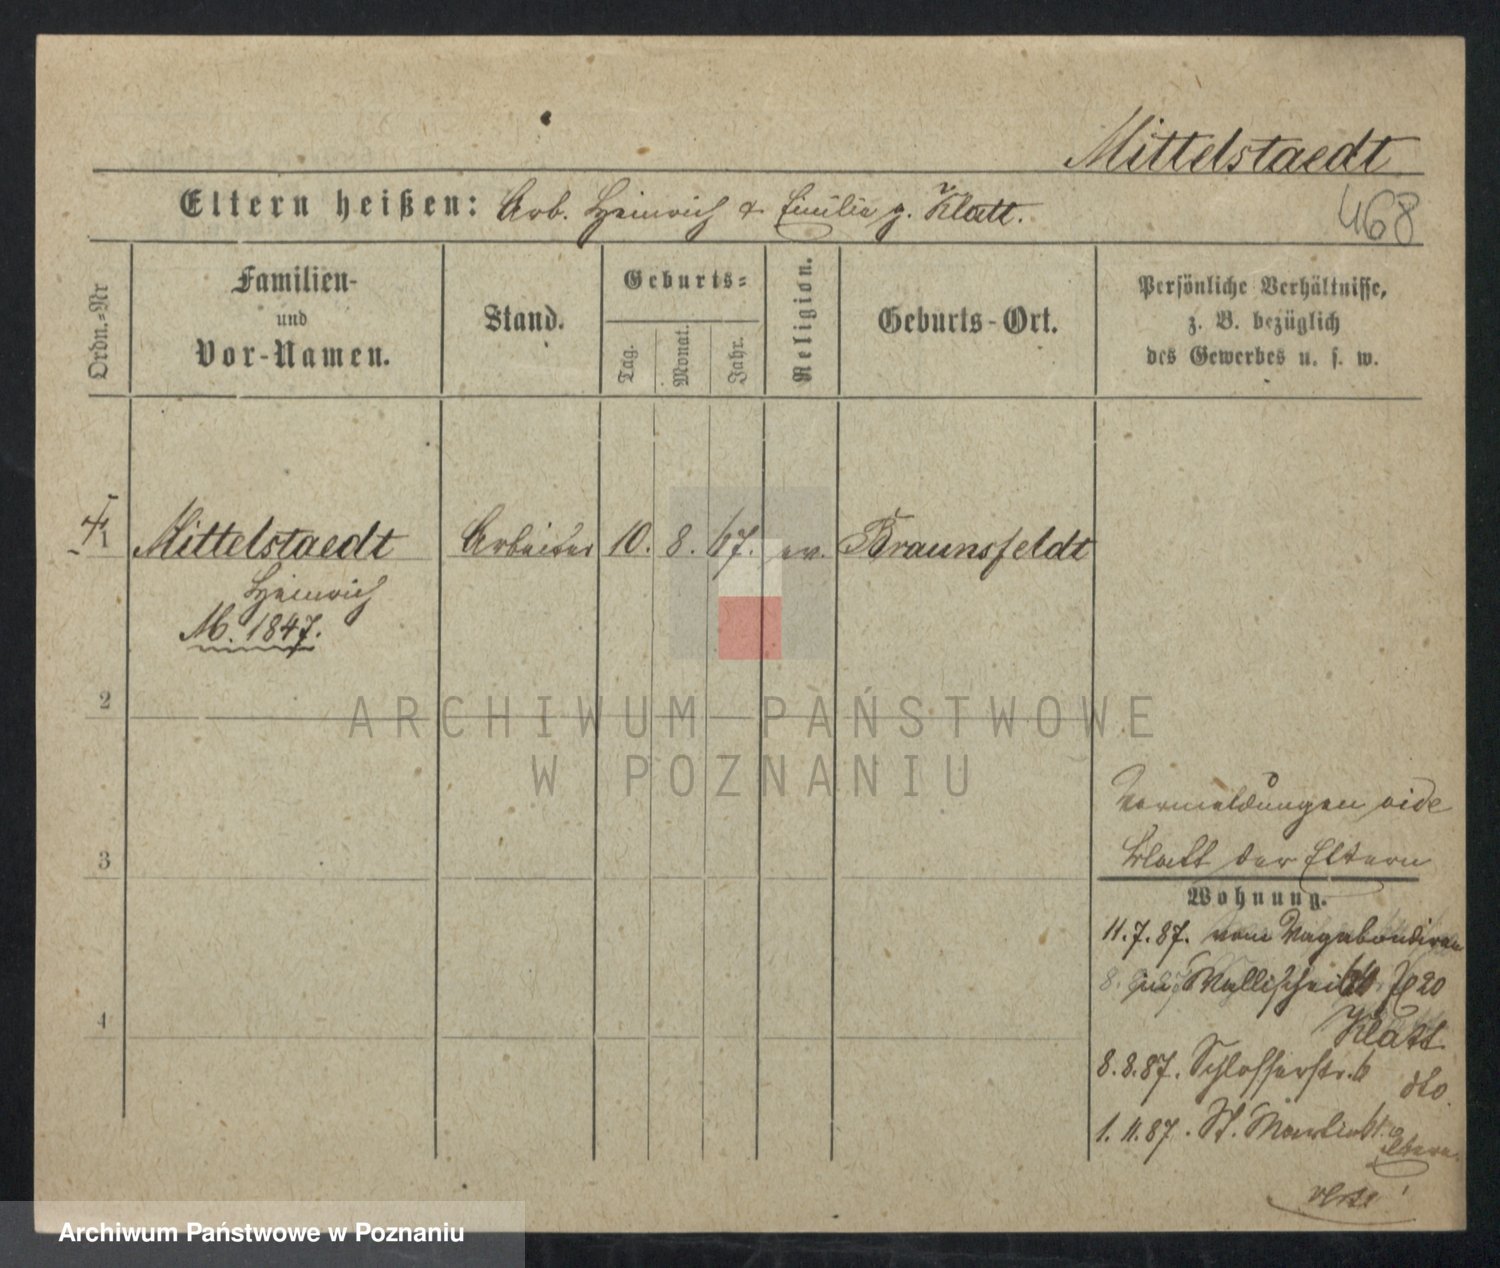 Mittelstaedt
468
Eltern heißen: Arb. Heinrich & Emilie g. Klatt.
Ordn.-Nr
Familien-
und
Vor-Namen.
Stand.
Geburts-
Tag.
Monat.
Jahr.
Religion.
Geburts-Ort.
Persönliche Verhältnisse,
z. B. bezüglich
des Gewerbes u. s. w.
1 Mittelstaedt Arbeiter 10. 8. 67. ev. Braunsfeldt
Heinrich
M. 1847.
2
3
4
ARCHIWUM PAŃSTWOWE
W POZNANIU
Vermeldungen vide
Blatt der Eltern
Wohnung.
11.7.87. vom Vagabondiren
Wallischei 20
Klatt
8.8.87. Schlosserstr. 6 dto.
1.11.87. St. Martin Eltern
Archiwum Państwowe w Poznaniu